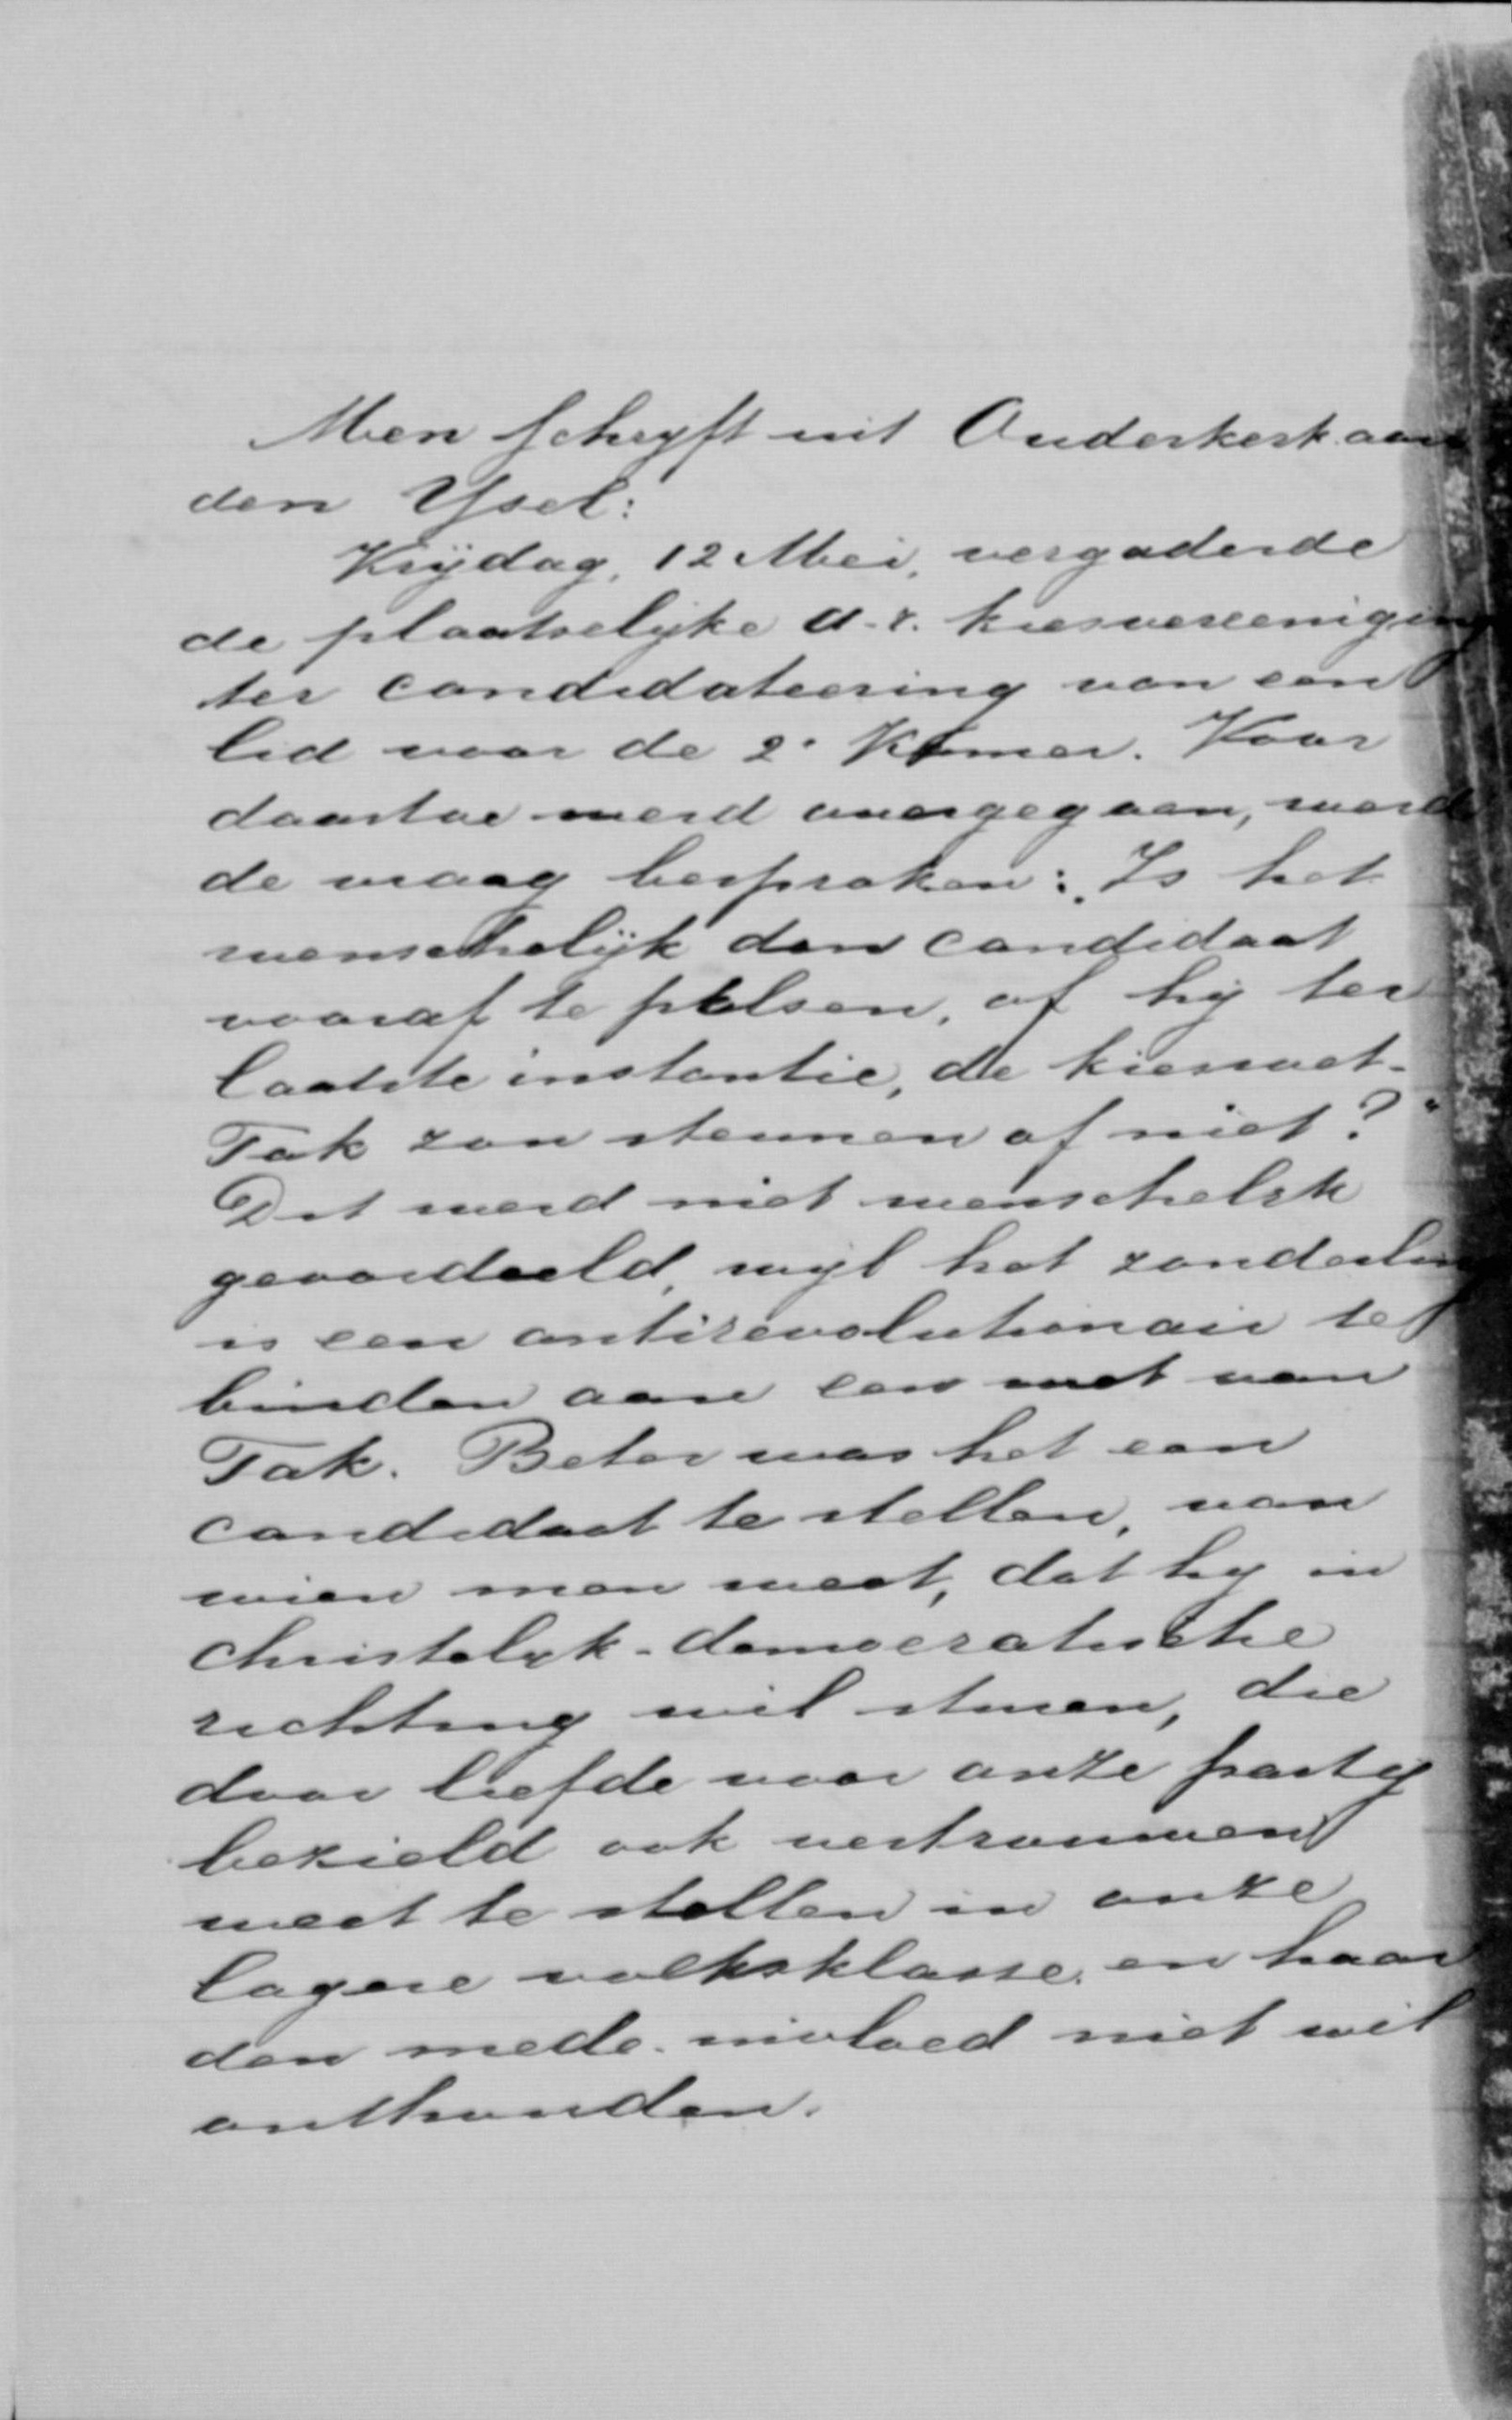 Men schrijft uit Ouderkerk aan
den Ysel:
Vrijdag, 12 Mei, vergaderde
de plaatselijke a.r. kiesvereeniging
ter candidateering van een
lid voor de 2e Kamer. Voor
daartoe werd overgegaan, werd
de vraag besproken: „Is het
wenschelijk den candidaat
vooraf te polsen, of hij ter
laatste instantie, de kieswet-
Tak zou steunen of niet?"
Dit werd niet wenschelijk
geoordeeld, wijl het zonderling
is een antirevolutionair te
binden aan een wet van
Tak. Beter was het een
candidaat te stellen, van
wien men weet, dat hij in
christelijk-democratische
richting wil sturen, die
door liefde voor onze partij
bezield ook vertrouwen
weet te stellen in onze
lagere volksklasse, en haar
den mede-invloed niet wil
onthouden.